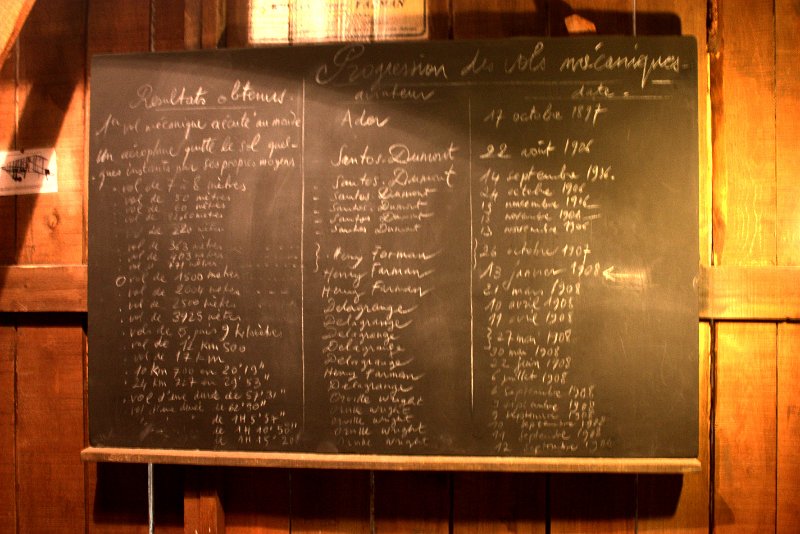 FARMAN
Progression des vols mécaniques.
Résultats obtenus. aviateur date.
1er vol mécanique exécuté au monde Ader 17 octobre 1897
Un aéroplane quitte le sol quel-
ques instants par ses propres moyens Santos-Dumont 22 août 1906
vol de 7 à 8 mètres Santos-Dumont 14 septembre 1906.
vol de mètres Santos-Dumont 24 octobre 1906
vol de mètres Santos-Dumont novembre 1906
vol de mètres Santos-Dumont novembre 1906
vol de 220 mètres Santos-Dumont novembre 1906
vol de 363 mètres
vol de 403 mètres Henry Farman 26 octobre 1907
vol de 771 mètres
vol de 1500 mètres Henry Farman 13 janvier 1908
vol de 2004 mètres Henry Farman 21 mars 1908
vol de 2500 mètres Delagrange 10 avril 1908
vol de 3925 mètres Delagrange 11 avril 1908
vols de 5 puis 9 kilomètres Delagrange 27 mai 1908
vol de 12 km 500 Delagrange 30 mai 1908
vol de 17 km Delagrange 22 juin 1908
10 km 700 en 20' 19" Henry Farman 6 juillet 1908
24 km 727 en 29' 53" Delagrange 6 septembre 1908
vol d'une durée de 57' 31" Orville Wright 9 septembre 1908
vol d'une durée de Orville Wright 9 septembre 1908
de 1 H 5' 57" Orville Wright 10 septembre 1908
de 1 H 10' Orville Wright 11 septembre 1908
de 1 H 15' 20" Orville Wright 12 septembre 1908